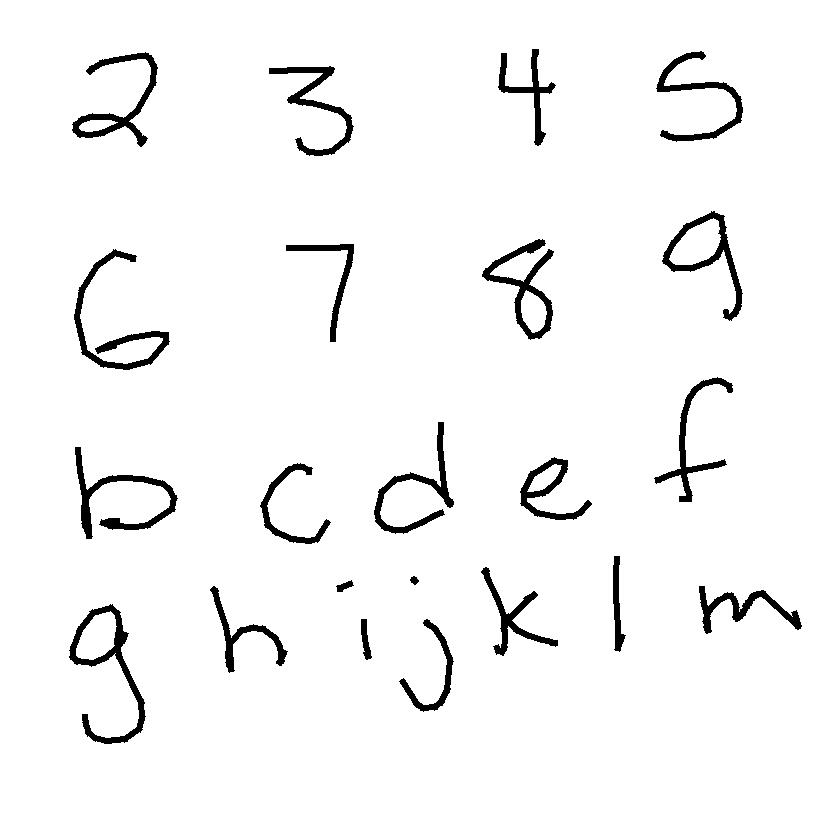 2 3 4 5
6 7 8 9
b c d e f
g h i j k l m